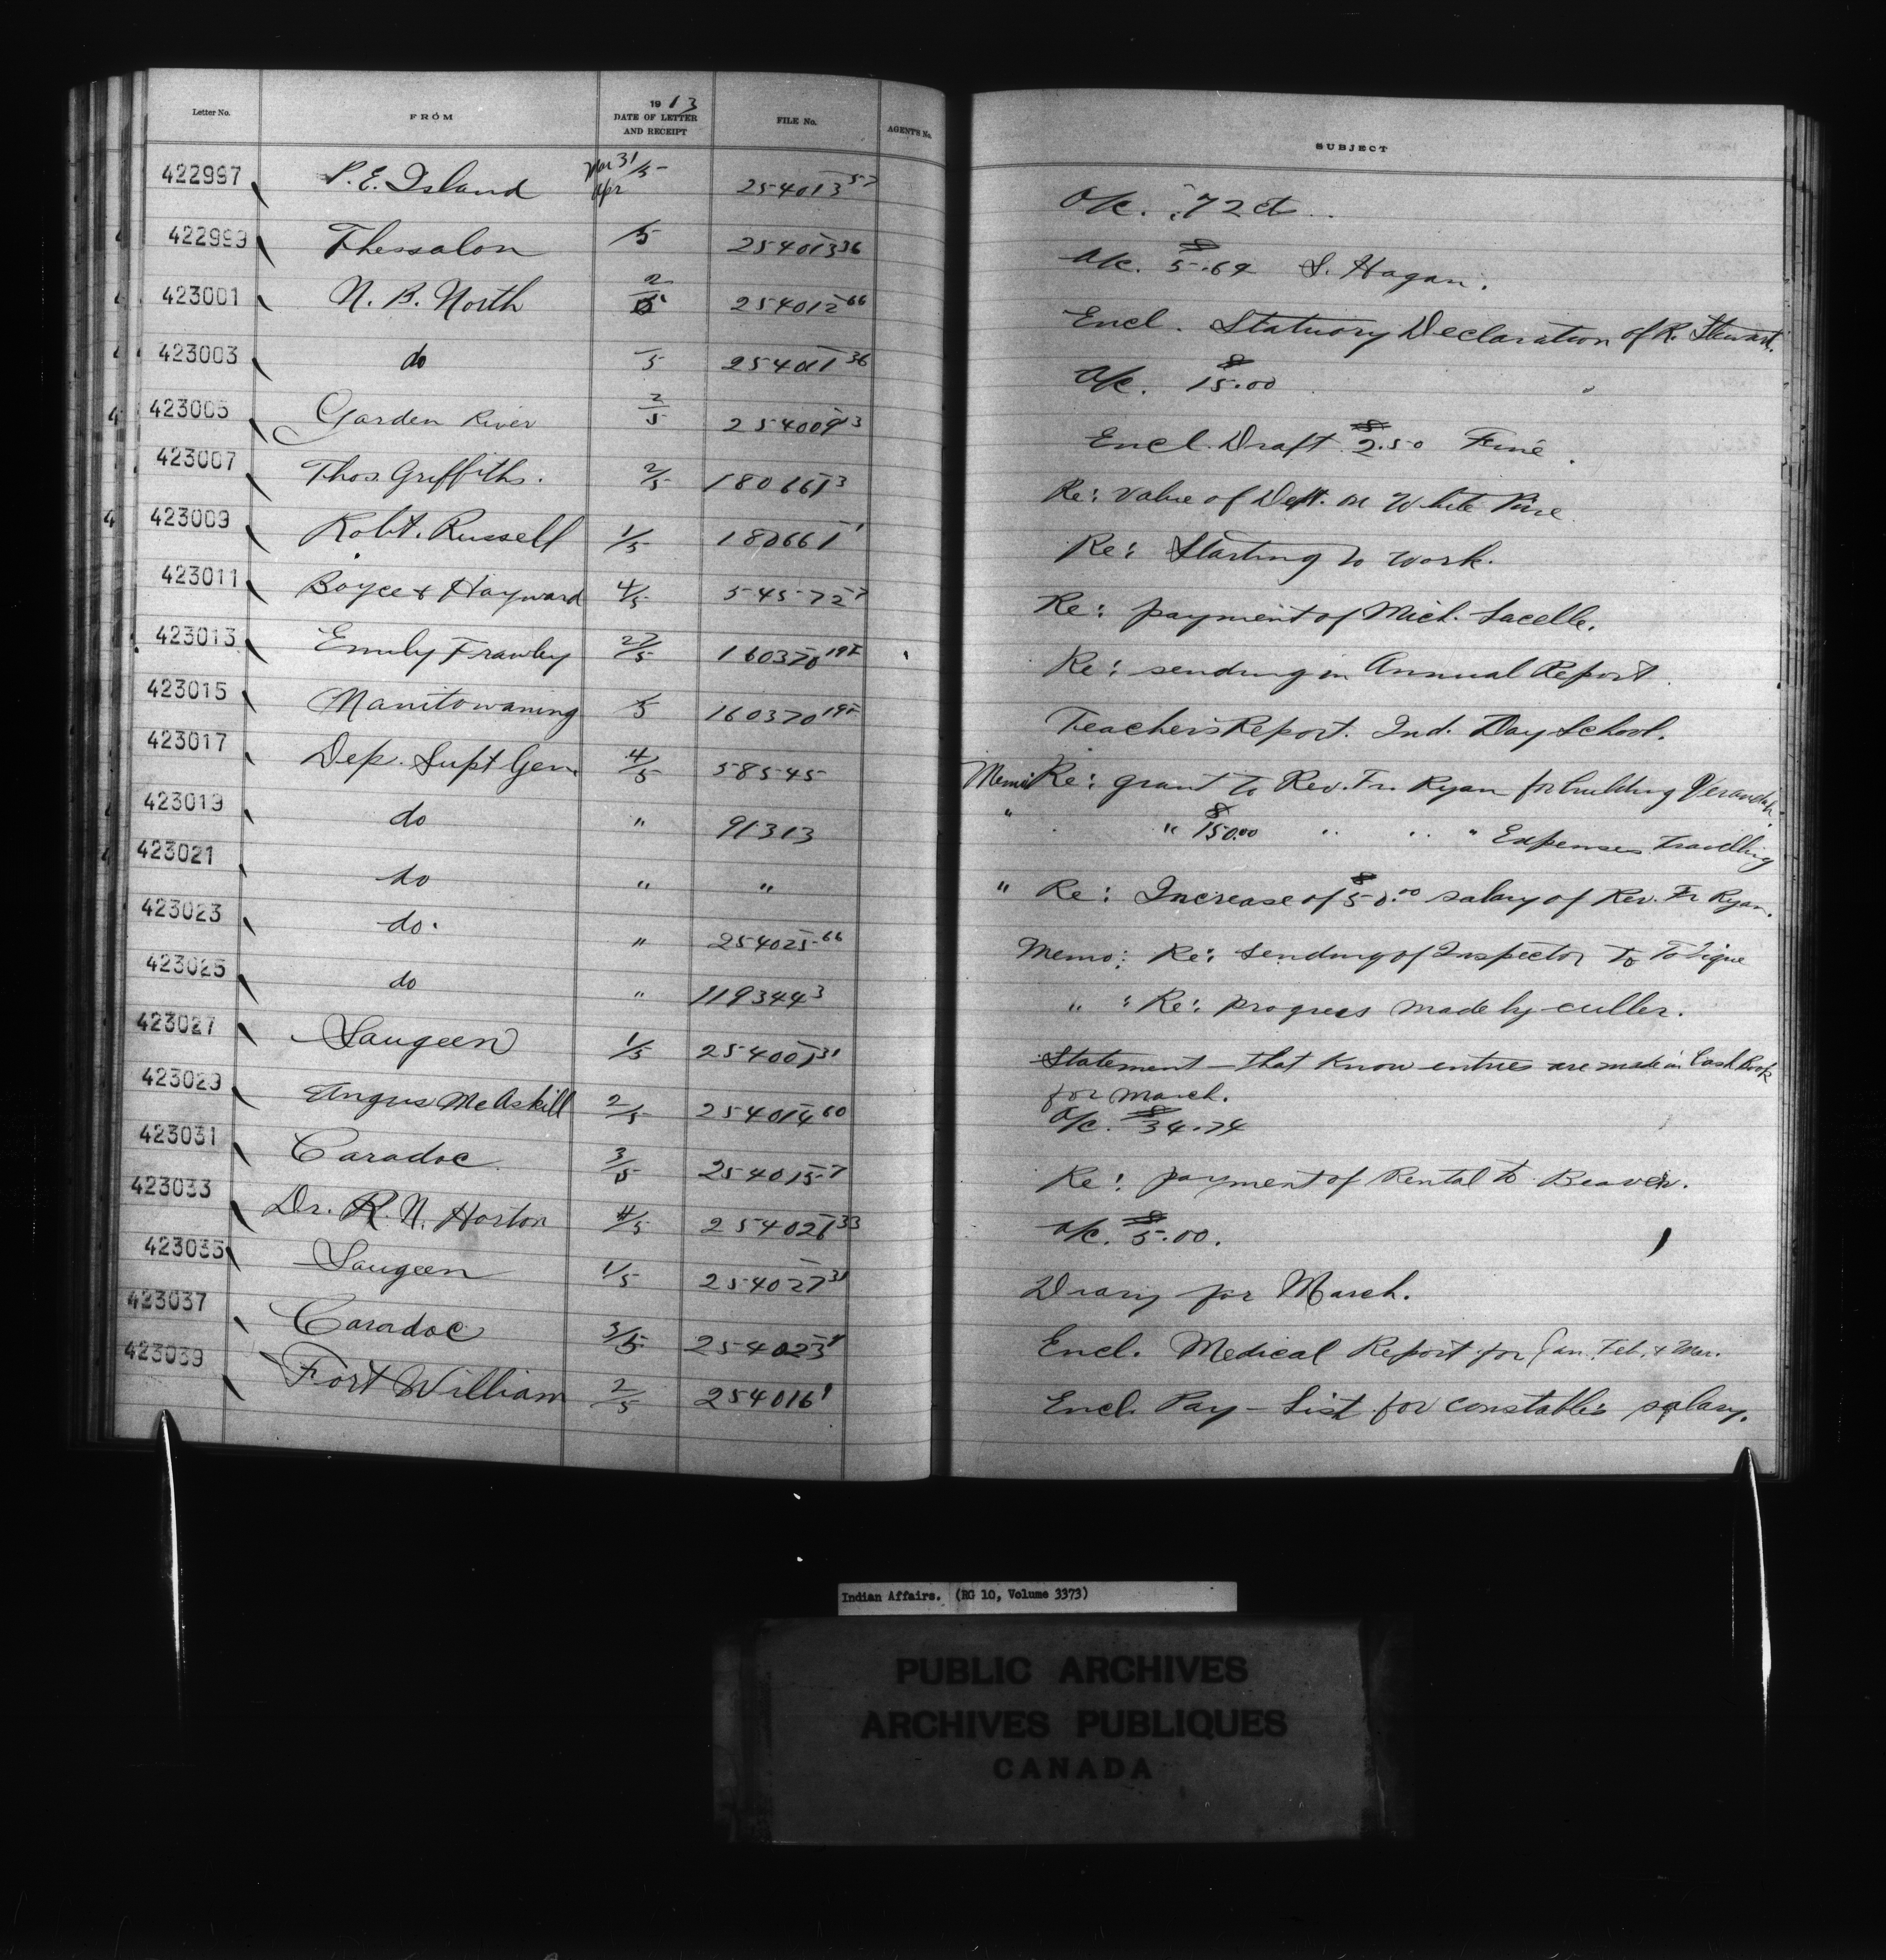 Letter No. FROM 1913 DATE OF LETTER AND RECEIPT FILE No. AGENT'S No. SUBJECT
422997 P. E. Island Mar 31/5 Apr 254013 57 a/c. .72 cts
422999 Thessalon /5 254013 36 a/c. $5.69 S. Hagan.
423001 N. B. North 2/5 254012 66 Encl. Statuory Declaration of R. Stewart.
423003 do /5 254011 36 a/c. $15.00
423005 Garden River 2/5 254009 13 Encl. Draft $2.50 Fine.
423007 Thos. Griffiths. 2/5 180661 3 Re: value of Dept. on White Pine
423009 Robt. Russell 1/5 180661 1 Re: Starting to work.
423011 Boyce & Hayward 4/5 54572 7 Re: payment of Mich. Lacelle.
423013 Emily Frawley 27/5 160370 Re: sending in Annual Report.
423015 Manitowaning /5 160370 Teacher's Report. Ind. Day School.
423017 Dep. Supt Gen. 4/5 58545 Memo Re: grant to Rev. Fr. Ryan for building Verandah.
423019 do " 91313 " " $150.00 " " " Expenses Travelling
423021 do " " " Re: Increase of $50.00 salary of Rev. Fr Ryan.
423023 do. " 254025 66 Memo: Re: sending of Inspector to Tobique
423025 do " 119344 3 " : Re: progress made by culler.
423027 Saugeen 1/5 254001 31 Statement - that know entries are made in Cash Book
for March.
423029 Angus McAskill 2/5 254014 60 a/c. $34.74
423031 Caradoc 3/5 254015 7 Re: payment of Rental to Beaver.
423033 Dr. R. N. Horton 4/5 254021 33 a/c. $5.00.
423035 Saugeen 1/5 254027 31 Diary for March.
423037 Caradoc 3/5 254023 Encl. Medical Report for Jan. Feb. & Mar.
423039 Fort William 2/5 254016 1 Encl. Pay-List for constable's salary.
Indian Affairs. (RG 10, Volume 3373)
PUBLIC ARCHIVES
ARCHIVES PUBLIQUES
CANADA